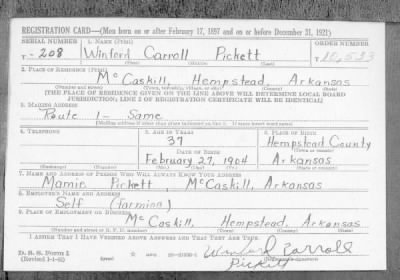 REGISTRATION CARD—(Men born on or after February 17, 1897 and on or before December 31, 1921)
SERIAL NUMBER 1. NAME (Print) ORDER NUMBER
T-208 Winfort Carroll Pickett
2. PLACE OF RESIDENCE (Print)
McCaskill, Hempstead, Arkansas
[THE PLACE OF RESIDENCE GIVEN ON THE LINE ABOVE WILL DETERMINE LOCAL BOARD
JURISDICTION; LINE 2 OF REGISTRATION CERTIFICATE WILL BE IDENTICAL]
3. MAILING ADDRESS
Route 1- Same
[Mailing address if other than place indicated on line 2. If same insert word same]
4. TELEPHONE 5. AGE IN YEARS 6. PLACE OF BIRTH
37 Hempstead County
DATE OF BIRTH
February 27, 1904 Arkansas
(Exchange) (Number) (Mo.) (Day) (Yr.)
7. NAME AND ADDRESS OF PERSON WHO WILL ALWAYS KNOW YOUR ADDRESS
Mamie Pickett, McCaskill, Arkansas
8. EMPLOYER'S NAME AND ADDRESS
Self (Farming)
9. PLACE OF EMPLOYMENT OR BUSINESS
McCaskill, Hempstead, Arkansas
(Number and street or R. F. D. number) (Town) (County) (State)
I AFFIRM THAT I HAVE VERIFIED ABOVE ANSWERS AND THAT THEY ARE TRUE.
D. S. S. Form 1
(Revised 1-1-42)
Carroll
Pickett